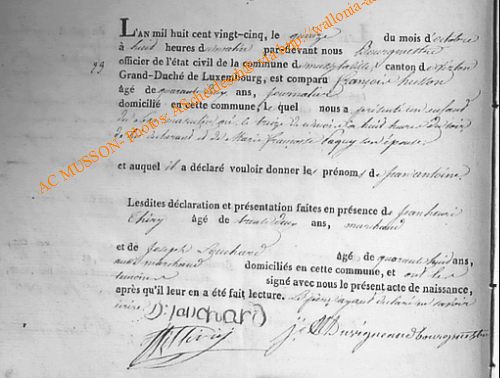 L'AN mil huit cent vingt-cinq, le quinze du mois d'octobre
à huit heures du matin par-devant nous Bourgmestre
officier de l'état civil de la commune de canton de
Grand-Duché de Luxembourg, est comparu françois husson
99
âgé de quarante ans, journalier
domicilié en cette commune, le quel nous a présenté un enfant
du sexe masculin, né le treize de ce mois à huit heures du soir
de lui déclarant et de Marie françoise son épouse
et auquel il a déclaré vouloir donner les prénoms de jean antoine
Lesdites déclaration et présentation faites en présence de jean henri
Thiry âgé de trente deux ans, marchand
et de Joseph âgé de quarante huit ans,
aussi marchand domiciliés en cette commune, et ont les
témoins signé avec nous le présent acte de naissance,
après qu'il leur en a été fait lecture. le père ayant déclaré ne savoir
écrire
Thiry
bourgmestre
AC MUSSON- Photos/ Archeodestin via http://wallonia-a